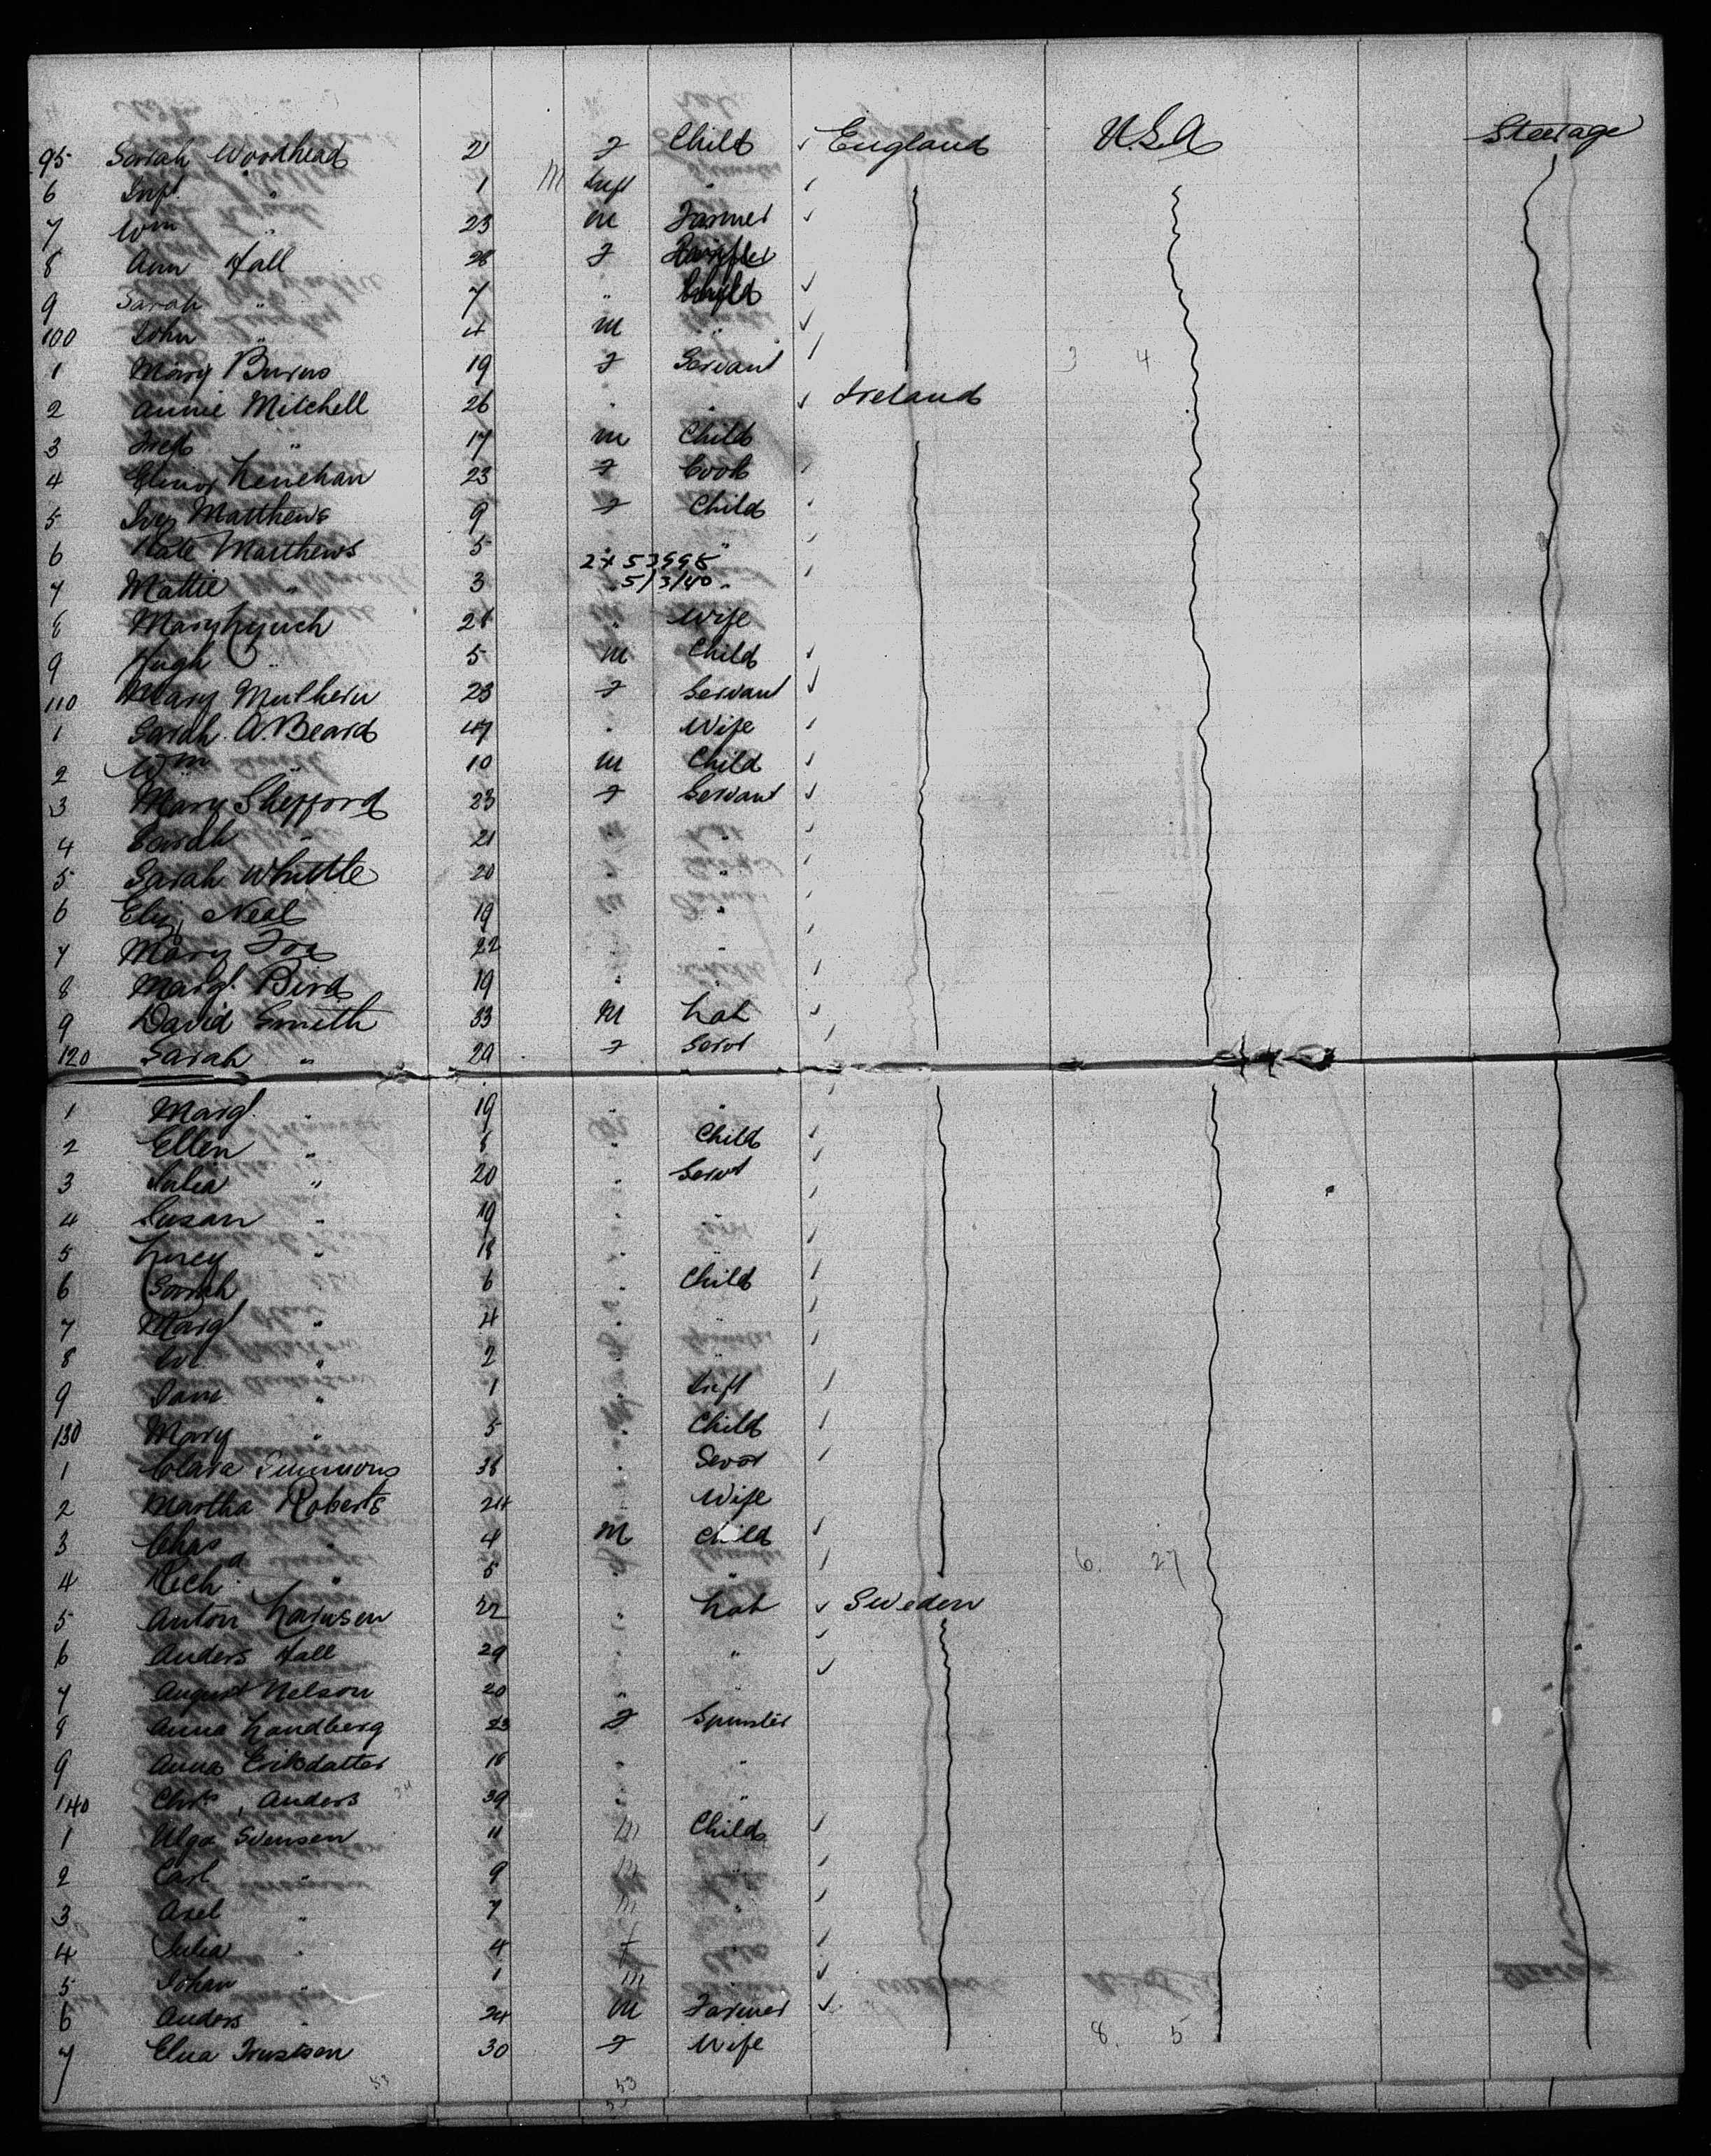 95 Sarah Woodhead 21 F Child ✓ England U.S.A Steerage
6 Inft " 1 M Inft "
7 Wm " 23 M Farmer ✓
8 Ann Hall 28 F
9 Sarah " 7 " Child ✓
100 John " 4 M " ✓
1 Mary Burns 19 F Servant 3 4
2 Annie Mitchell 26 " " ✓ Ireland
3 Fred " 17 M Child
4 Elinor Kenehan 23 F Cook
5 Matthews 9 F Child
6 Kate Matthews 5 " "
2x 53998
7 Mattie " 3 "
5/3/40
8 Mary Lynch 28 " Wife
9 Hugh " 5 M Child ✓
110 Mary Mulhern 23 F Servant ✓
1 Sarah A Beard 47 " Wife
2 Wm " 10 M Child ✓
3 Mary Shefford 23 F Servant ✓
4 Sarah " 21 " "
5 Sarah Whittle 20 " "
6 Eliz Neal 19 " "
7 Mary Fox 22 " "
8 Margt Bird 19 " "
9 David Smith 33 M Lab ✓
120 Sarah " 29 F Servt
1 Margt " 19 " "
2 Ellen " 8 " Child
3 Julia " 20 " Servt
4 Susan " 19 " "
5 Lucy " 18 " "
6 Sarah " 6 " Child
7 Margt " 4 " "
8 " 2 " "
9 Jane " 1 " Inft
130 Mary " 5 " Child
1 Clara Simmons 38 " Servt
2 Martha Roberts 24 " Wife
3 Chas " 4 M Child
4 Richd " 5 " " 6. 27
5 Anton 22 " Lab ✓ Sweden
6 Anders Hall 29 " " ✓
7 August Nelson 20 " " ✓
8 Anna Landberg 23 F Spinster
9 Anna Eriksdatter 18 " "
140 Anders 39 " "
1 Olga Svensen 11 M Child ✓
2 Carl " 9 M "
3 Axel " 7 M "
4 Julia " 4 F "
5 Johan " 1 M " ✓
6 Anders " 24 M Farmer ✓
7 Elna 30 F Wife 8. 5
53 53